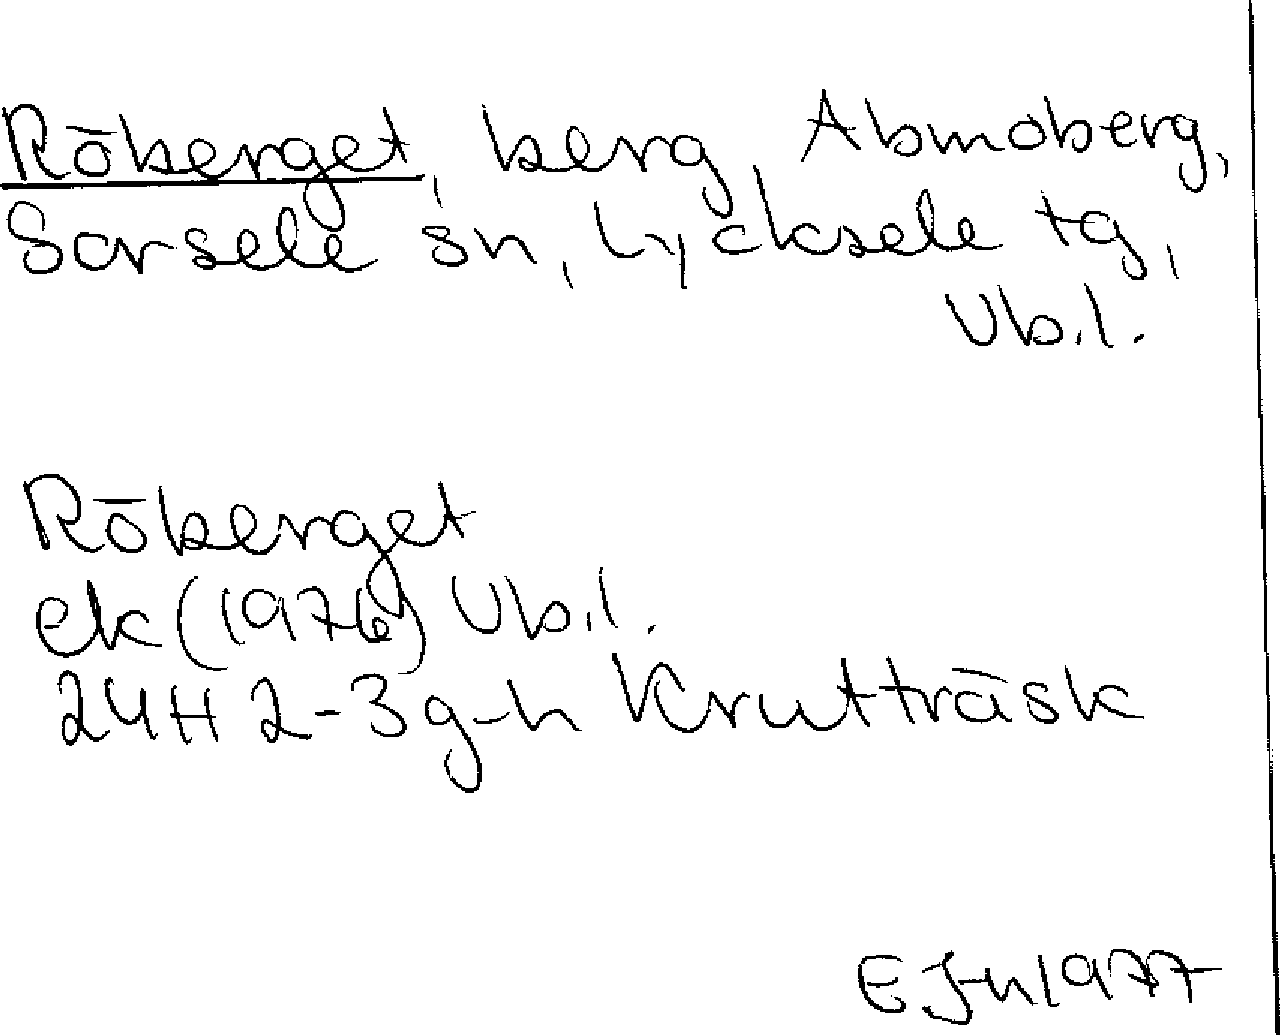 Röberget, berg, Abmoberg,
Sorsele sn, Lycksele tg,
Vb.l.
Röberget
ek (1976) Vb.l.
24H 2-3 g-h Krutträsk
E J-n 1977